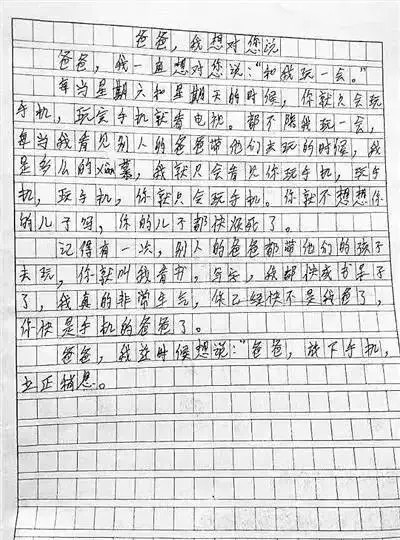 爸爸,我想对您说
爸爸,我一直想对您说:“和我玩一会。”
每当星期六和星期天的时候,你就只会玩
手机,玩完手机就看电视。都不陪我玩一会,
每当我看见别人的爸爸带他们去玩的时候,我
是多么的xiàn慕,我就只会看见你玩手机,玩手
机,玩手机,你就只会玩手机。你就不想想你
的儿子吗,你的儿子都快没死了。
记得有一次,别人的爸爸都带他们的孩子
去玩,你就叫我看书,写字,我都快成书呆子
了,我真的非常生气,你已经快不是我爸了,
你快是手机的爸爸了。
爸爸,我这时候想说:“爸爸,放下手机,
立正稍息。